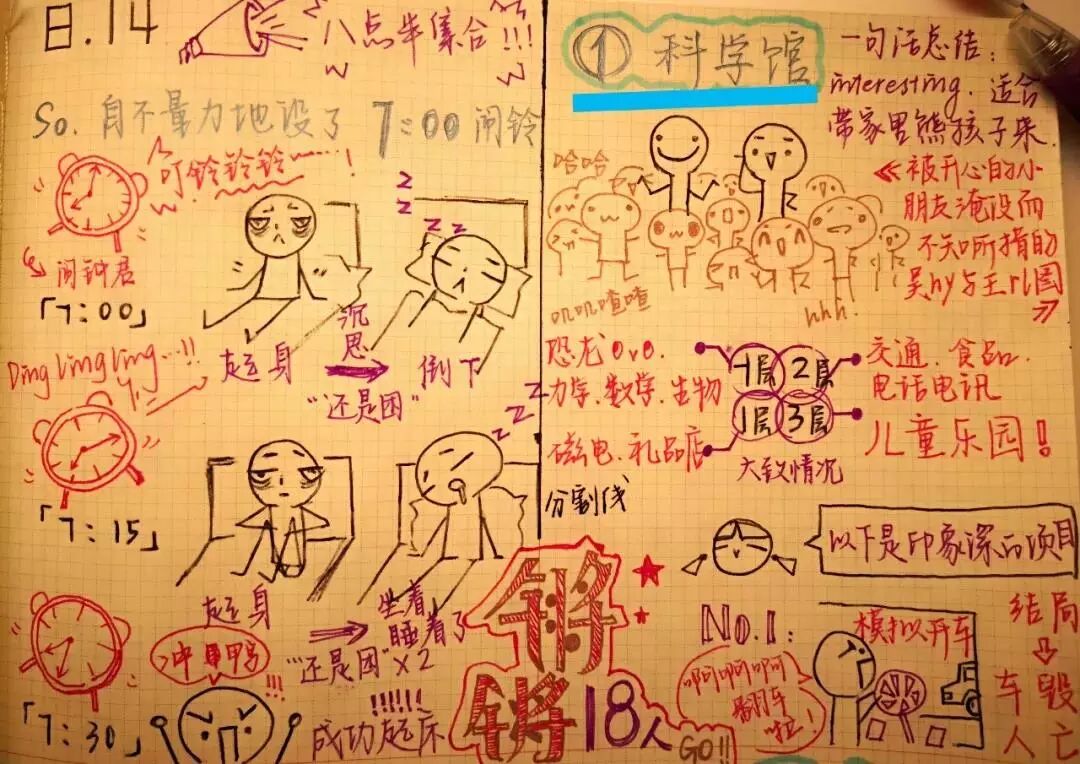 8.14
八点半集合!!!
So. 自不量力地设了 7:00 闹铃
叮铃铃铃……!
闹钟君
「7:00」
起身
沉思
倒下
“还是困”
Z
Z
Z Z
Ding Ling Ling…!!
「7:15」
起身
坐着
睡着了
“还是困”×2
Z
Z
Z
冲鸭
!!!
「7:30」
!!!!!!
成功起床
锵
锵
18人
GO!!
① 科学馆
一句话总结:
interesting. 适合
带家里熊孩子来.
≪被开心的小
朋友淹没而
不知所措的
吴hy与王rl图
哈哈
叽叽喳喳
hhh.
恐龙OvO.
力学.数学.生物
磁电.礼品店
-1层
2层
1层
3层
大致情况
交通.食品.
电话电讯
儿童乐园!
分割线
以下是印象深的项目
No.1:
模拟开车
啊啊啊啊
翻车
啦!
结局
车毁
人亡